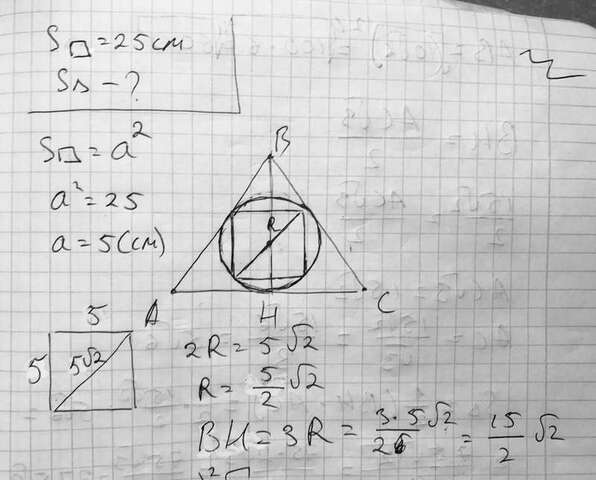 S□ = 25 см
S△ - ?
S□ = a²
a² = 25
a = 5 (см)
B
R
A
H
C
5
5
5√2
2R = 5√2
R = 5/2 √2
BH = 3R = 3·5√2/2 = 15/2 √2